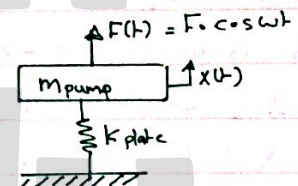 F(t) = F₀ cos ωt
m pump
x(t)
K plate